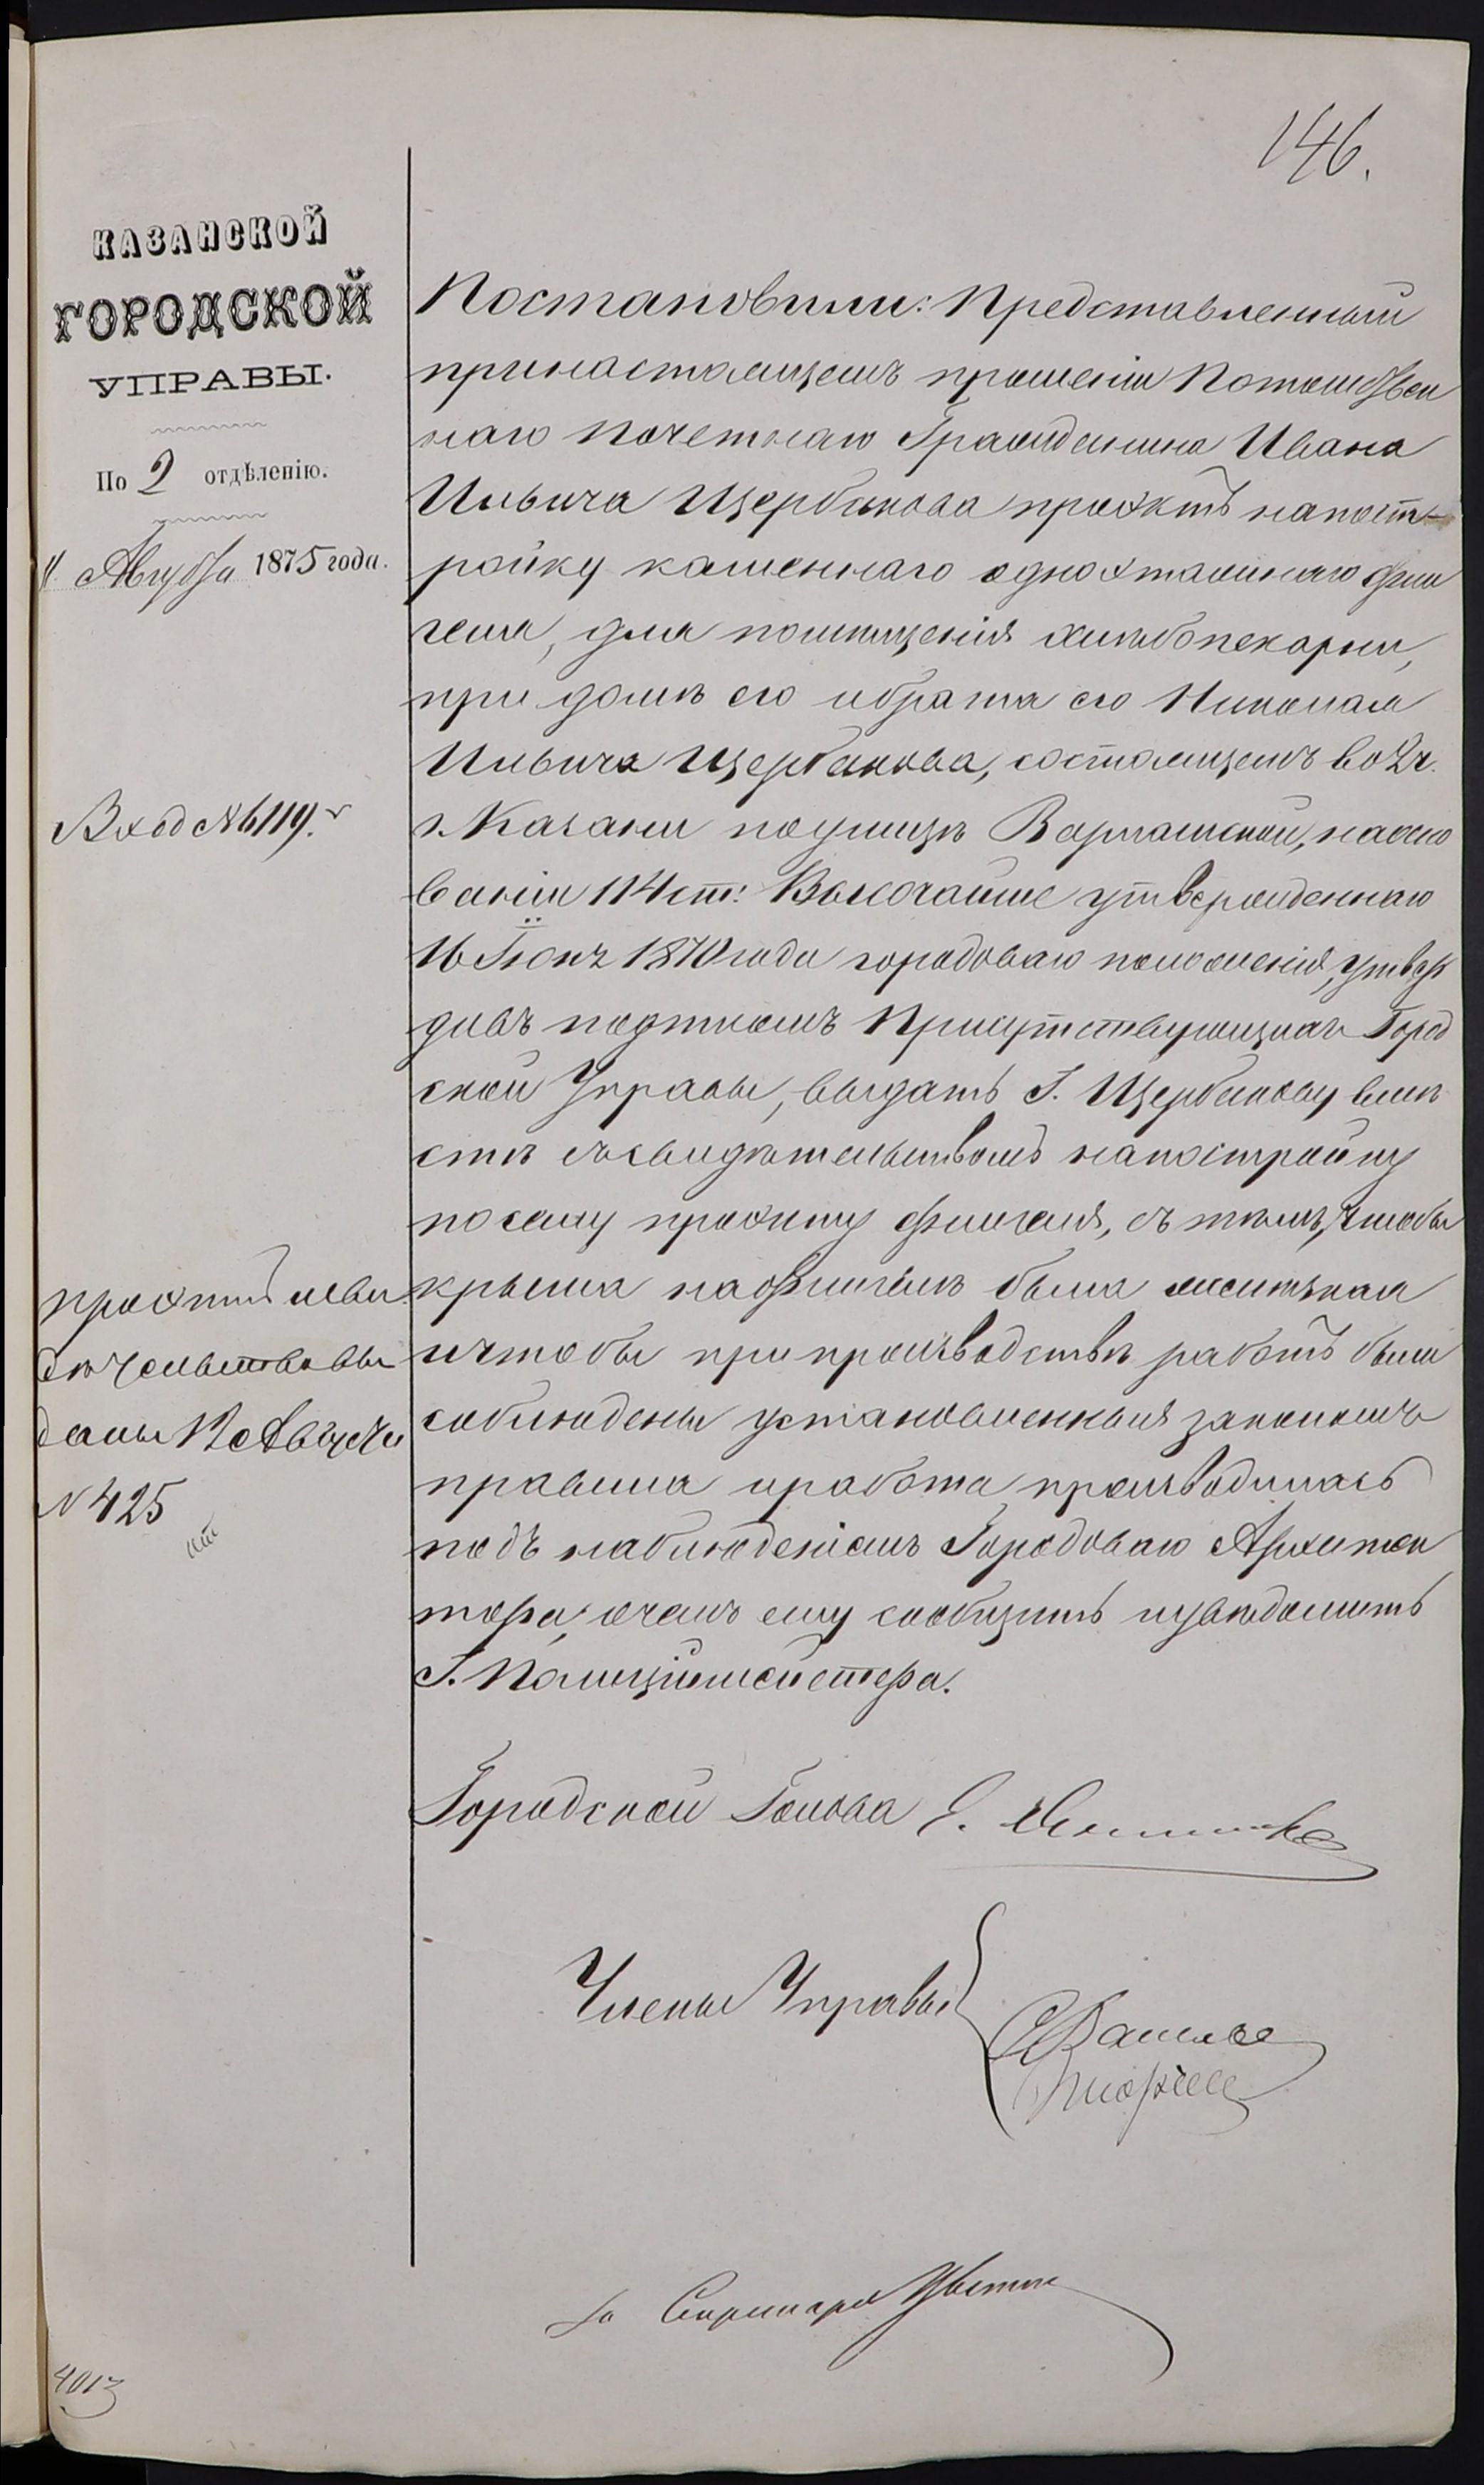 146.
КАЗАНСКОЙ
ГОРОДСКОЙ
УПРАВЫ.
По 2 отдѣленію.
11 Августа 1875 года.
Вход № 6119.
проэктъ и сви
дѣтельство вы
даны 12 Августа
№ 425
Постановили: Представленный
при настоящемъ прошеніи Потомствен
наго Почетнаго Гражданина Ивана
Ильича Щербакова проэктъ на пост-
ройку каменнаго одноэтажнаго фли
геля, для помѣщенія хлѣбопекарни,
при домѣ его и брата его Николая
Ильича Щербакова, состоящемъ во 2 ч.
г. Казани по улицѣ Варлашской, на осно
ваніи 114 ст: Высочайше утвержденнаго
16 Іюня 1870 года городоваго положенія, утвер
дивъ подписомъ Присутствующихъ Город
ской Управы, выдать Г. Щербакову вмѣ
стѣ съ свидѣтельствомъ на постройку
по сему проэкту флигеля, съ тѣмъ, чтобы
крыша на флигелѣ была желѣзная
и чтобы при производствѣ работъ были
соблюдены установленныя закономъ
правила и работа производилась
подъ наблюденіемъ Городоваго Архитек
тора, о чемъ ему сообщить и увѣдомить
Г. Полиціймейстера.
Городской Голова
Члены Управы
За Секретаря
4013